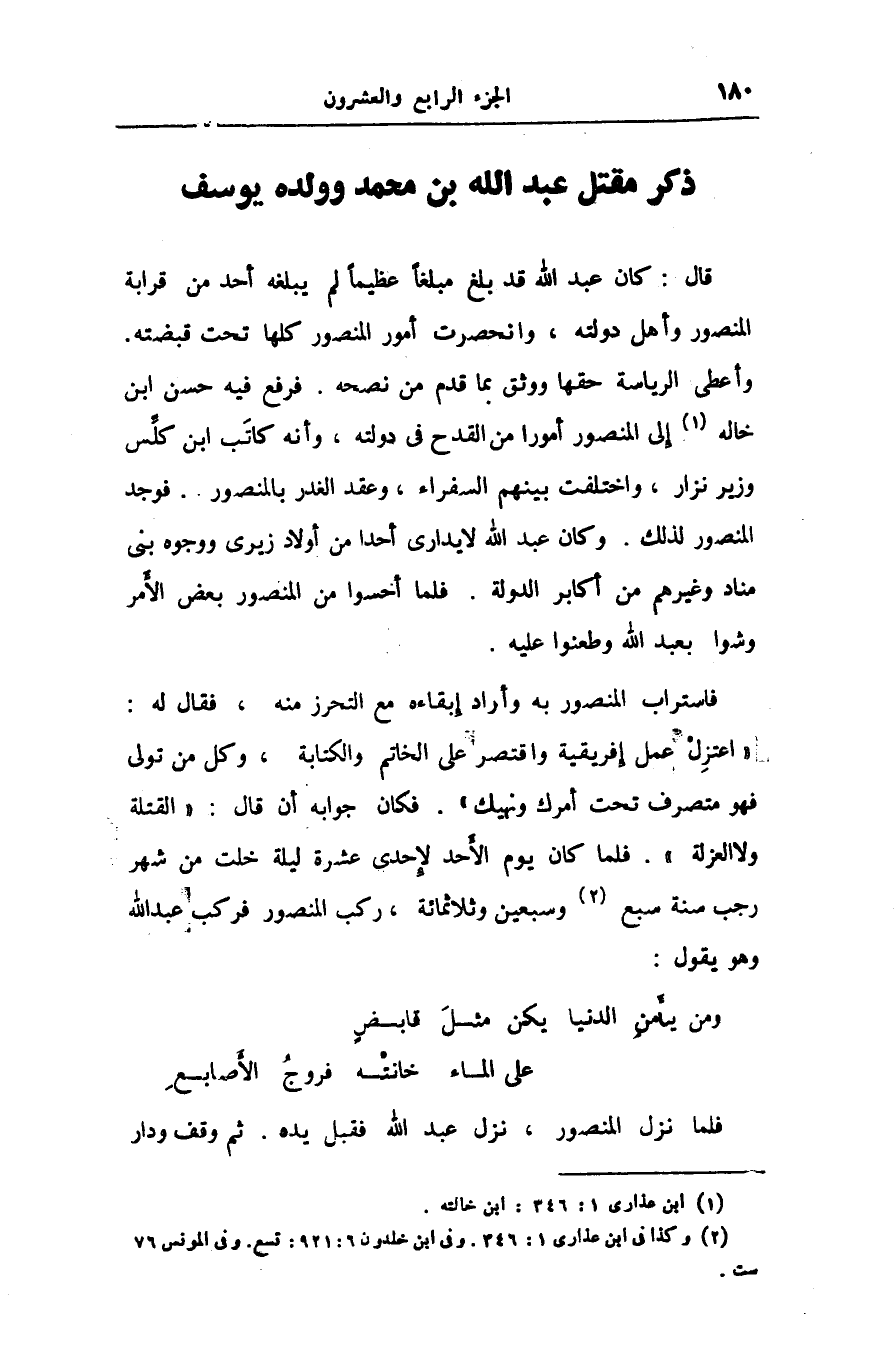 ١٨٠
الجزء الرابع والعشرون
ذكر مقتل عبد الله بن محمد وولده يوسف
قال : كان عبد الله قد بلغ مبلغاً عظيماً لم يبلغه أحد من قرابة
المنصور وأهل دولته ، وانحصرت أمور المنصور كلها تحت قبضته.
وأعطى الرياسة حقها ووثق بما قدم من نصحه . فرفع فيه حسن ابن
خاله (١) إلى المنصور أمورا من القدح فى دولته ، وأنه كاتَب ابن كلِّس
وزير نزار ، واختلفت بينهم السفراء ، وعقد الغدر بالمنصور . . فوجد
المنصور لذلك . وكان عبد الله لايدارى أحدا من أولاد زيرى ووجوه بنى
مناد وغيرهم من أكابر الدولة . فلما أخسوا من المنصور بعض الأَمر
وشوا بعبد الله وطعنوا عليه .
فاستراب المنصور به وأراد إبقاءه مع التحرز منه ، فقال له :
« اعتزِلْ عمل إفريقية واقتصر على الخاتم والكتابة ، وكل من تولى
فهو متصرف تحت أمرك ونهيك» . فكان جوابه أن قال : « القتلة
ولاالعزلة » . فلما كان يوم الأَحد لإِحدى عشرة ليلة خلت من شهر
رجب سنة سبع (٢) وسبعين وثلاثمائة ، ركب المنصور فركب عبدالله
وهو يقول :
ومن يأْمنِ الدنيا يكن مثــلَ قابــضٍ
على المــاء خانتْــه فروجُ الأَصابــعِ
فلما نزل المنصور ، نزل عبد الله فقبل يده . ثم وقف ودار
(١) ابن عذارى ١ : ٣٤٦ : ابن خالته .
(٢) وكذا فى ابن عذارى ١ : ٣٤٦ . وفى ابن خلدون ٦ : ٩٢١ : تسع. وفى المونس ٧٦
ست .